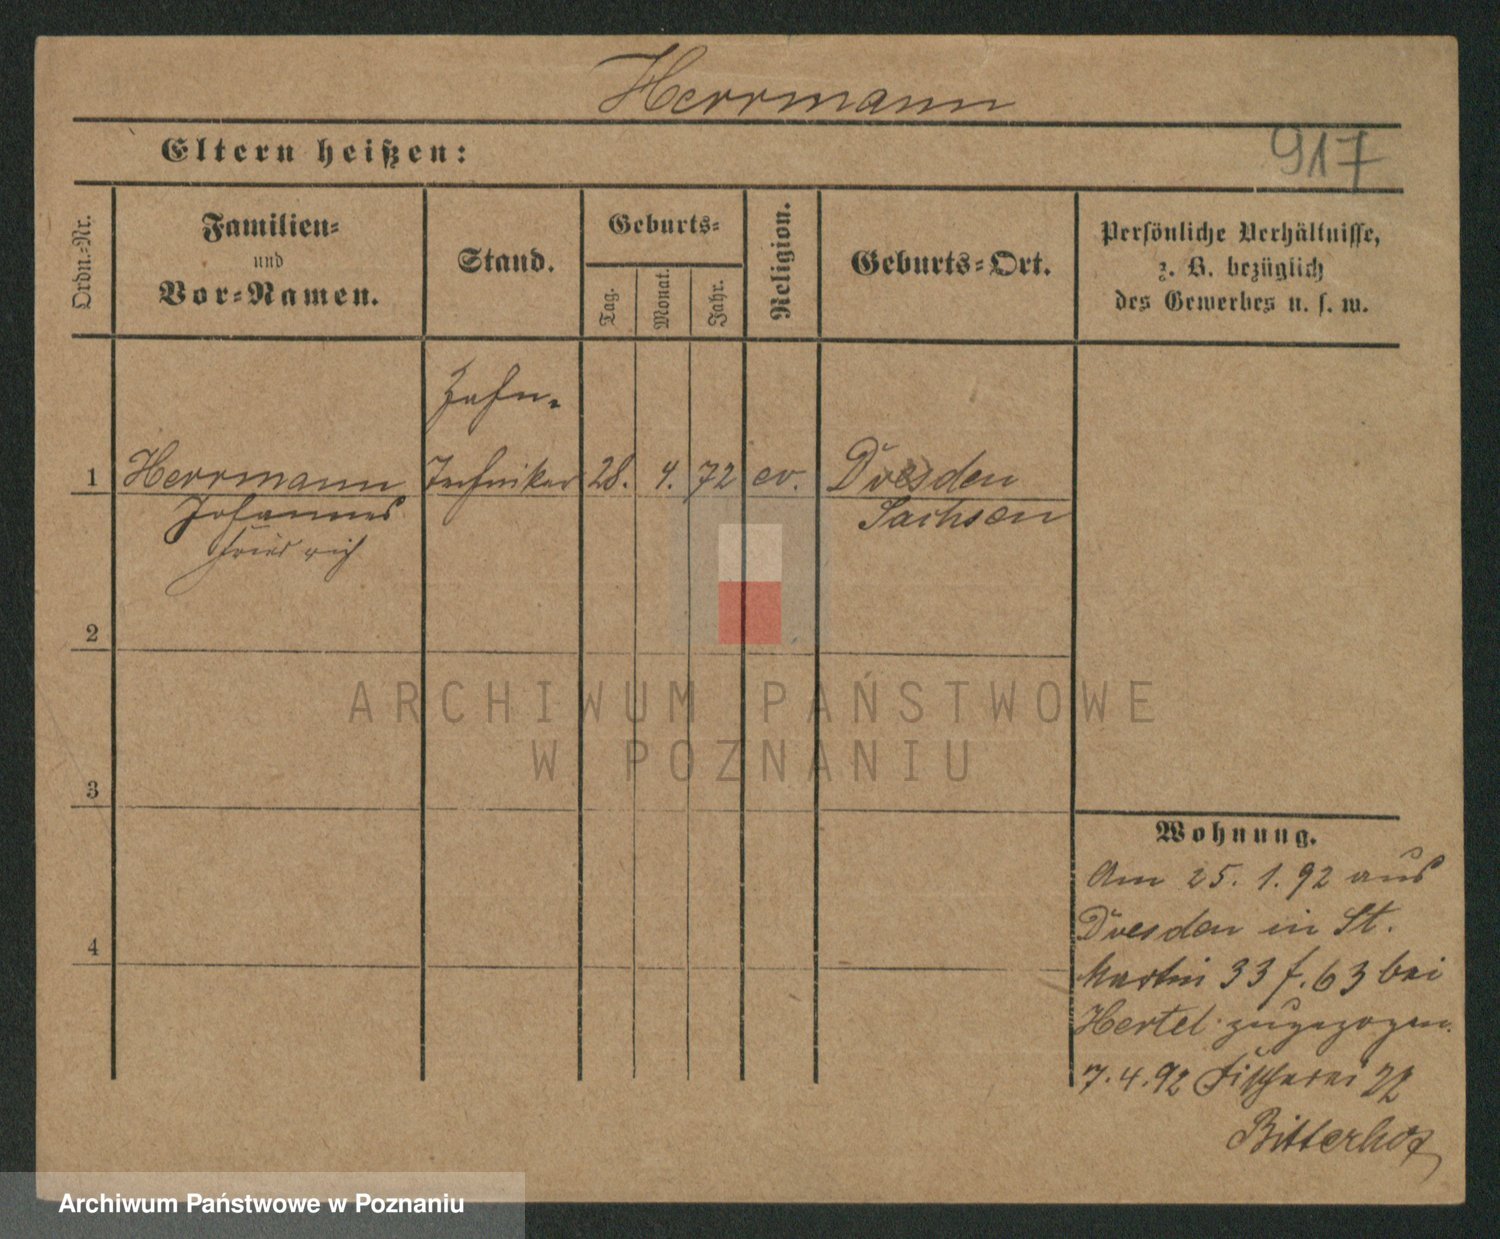 Herrmann
Eltern heißen:
917
Ordn.-Nr.
Familien-
und
Vor-Namen.
Stand.
Geburts-
Tag.
Monat.
Jahr.
Religion.
Geburts-Ort.
Persönliche Verhältnisse,
z. B. bezüglich
des Gewerbes u. s. w.
Zahn-
1 Herrmann Techniker 28. 4. 72 ev. Dresden
Johannes Sachsen
Friedrich
2
3
4
ARCHIWUM PAŃSTWOWE
W POZNANIU
Wohnung.
Am 25. 1. 92 aus
Dresden in St.
Martin 33 f. 63 bei
Hertel zugezogen.
7. 4. 92 Fischerei
Archiwum Państwowe w Poznaniu